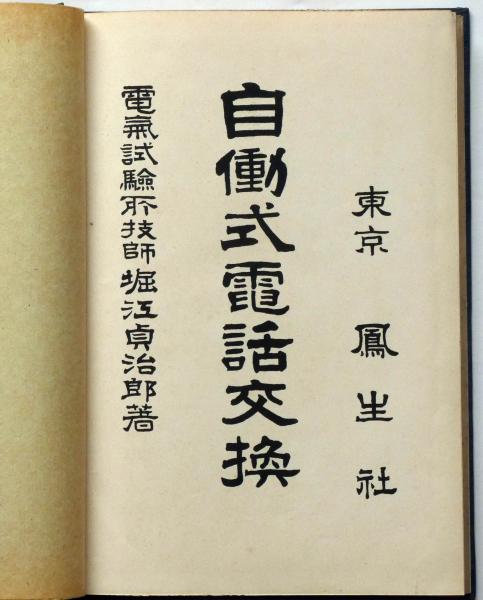 東京 鳳生社
自働式電話交換
電氣試驗所技師堀江貞治郎著